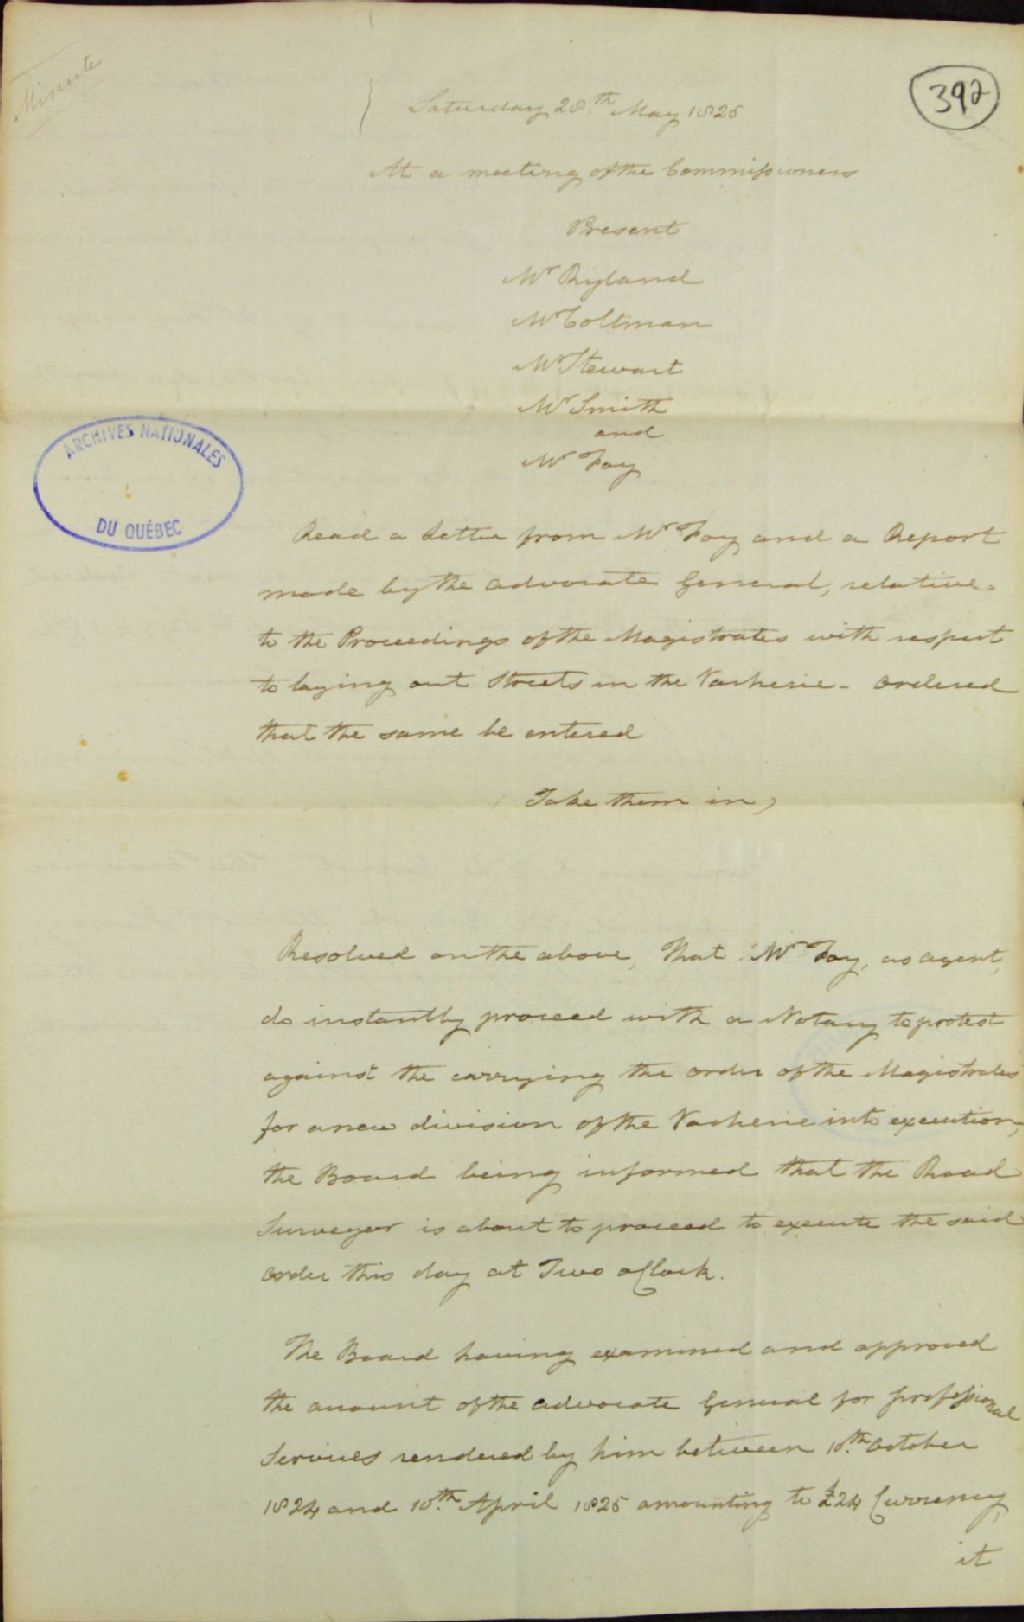 Minute
392
Saturday 28.th May 1825
At a meeting of the Commissioners
Present
Mr Ryland
Mr Coltman
Mr Stewart
Mr Smith
and
Mr Foy
ARCHIVES NATIONALES
DU QUÉBEC
Read a Letter from Mr Foy and a Report
made by the Advocate General, relative
to the Proceedings of the Magistrates with respect
to laying out Streets in the Vacherie - Ordered
that the same be entered
(Take them in)
Resolved on the above, That Mr Foy, as agent,
do instantly proceed with a Notary to protest
against the carrying the order of the Magistrates
for a new division of the Vacherie into execution,
the Board being informed that the Road
Surveyor is about to proceed to execute the said
order this day at Two oClock.
The Board having examined and approved
the account of the Advocate General for professional
Services rendered by him between 10.th October
1824 and 10.th April 1825 amounting to £24 Currency,
it